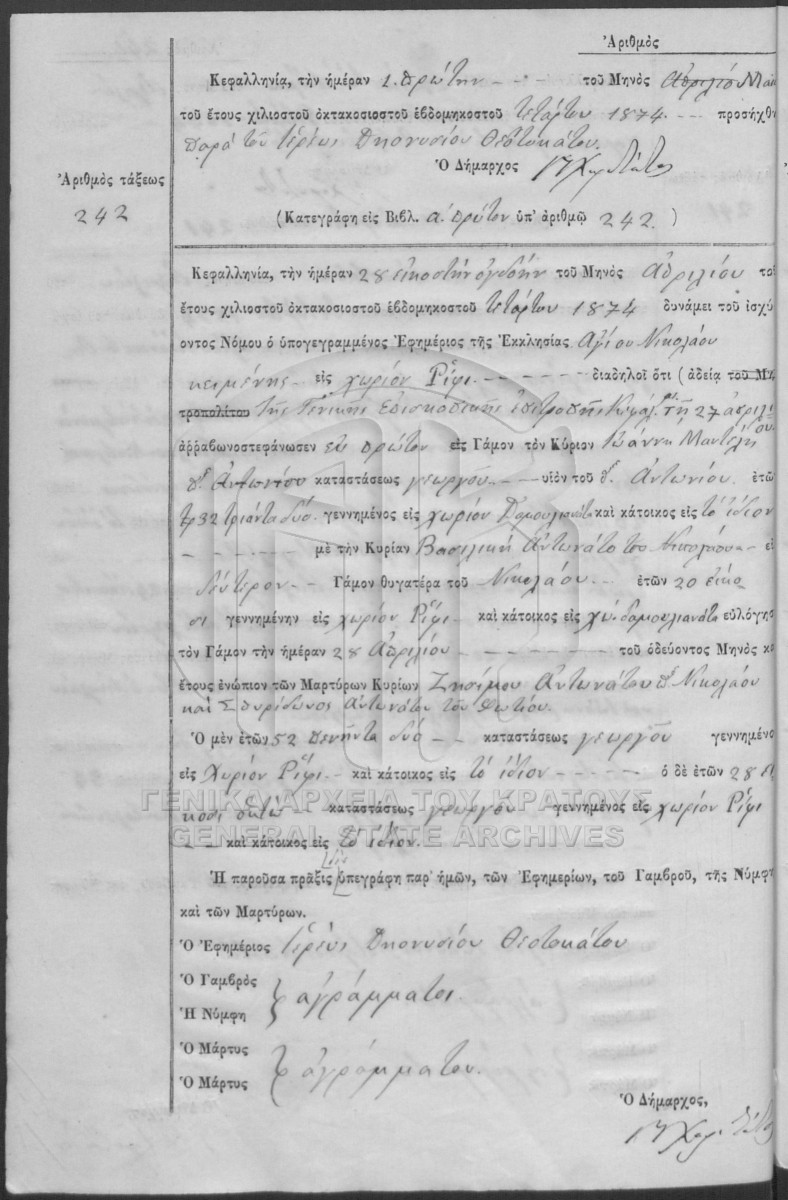 Ἀριθμὸς
Κεφαλληνίᾳ, τὴν ἡμέραν 1. πρώτην - - - τοῦ Μηνὸς Ἀπριλίο Μαι
τοῦ ἔτους χιλιοστοῦ ὀκτακοσιοστοῦ ἑβδομηκοστοῦ τετάρτου 1874. - - προσήχθη
παρὰ τοῦ ἱερέως Διονυσίου Θεοτοκάτου.
Ὁ Δήμαρχος
Ἀριθμὸς τάξεως
242
(Κατεγράφη εἰς Βιβλ. α. πρῶτον ὑπ' ἀριθμῷ 242. )
Κεφαλληνίᾳ, τὴν ἡμέραν 28 εἰκοστὴν ὀγδόην τοῦ Μηνὸς Ἀπριλίου τοῦ
ἔτους χιλιοστοῦ ὀκτακοσιοστοῦ ἑβδομηκοστοῦ τετάρτου 1874 δυνάμει τοῦ ἰσχύ
οντος Νόμου ὁ ὑπογεγραμμένος Ἐφημέριος τῆς Ἐκκλησίας Ἁγίου Νικολάου
κειμένης - εἰς χωρίον Ρίφι - - - - - διαδηλοῖ ὅτι (ἀδείᾳ τοῦ Μη
τροπολίτου τῆς Γενικῆς Ἐπισκοπικῆς Ἐπιτροπῆς Κεφαλ. τῇ 27 ἀπριλί
ου.
ἀῤῥαβωνοστεφάνωσεν εἰς πρῶτον εἰς Γάμον τὸν Κύριον Ἰωάννη Μαντέλη
Ἀντωνίου καταστάσεως γεωργοῦ - - υἱὸν τοῦ Ἀντωνίου. ἐτῶ
32 τριάντα δύο. γεννημένος εἰς χωρίον Δαμουλιανάτα καὶ κάτοικος εἰς τὸ ἴδιον
- - - - - - μὲ τὴν Κυρίαν Βασιλικὴ Ἀντωνάτο του Νικολάου - - εἰ
δεύτερον - - Γάμον θυγατέρα τοῦ Νικολάου - - ἐτῶν 20 εἴκο
σι γεννημένην εἰς χωρίον Ρίφι - καὶ κάτοικος εἰς χω. δαμουλιανάτα εὐλόγησ
τὸν Γάμον τὴν ἡμέραν 28 Ἀπριλίου - - - - - - τοῦ ὁδεύοντος Μηνὸς κα
ἔτους ἐνώπιον τῶν Μαρτύρων Κυρίων Ζησίμου Ἀντωνάτου Νικολάου
καὶ Σπυρίδωνος Ἀντωνάτου τοῦ Φωτίου.
Ὁ μὲν ἐτῶν 52 πενῆντα δύο - - καταστάσεως γεωργοῦ γεννημένο
εἰς Χωρίον Ρίφι - - καὶ κάτοικος εἰς τὸ ἴδιον - - - - - ὁ δὲ ἐτῶν 28 εἰ
κοσι ὀκτώ καταστάσεως γεωργοῦ γεννημένος εἰς χωρίον Ρίφι
- - καὶ κάτοικος εἰς τὸ ἴδιον.
ΓΕΝΙΚΑ ΑΡΧΕΙΑ ΤΟΥ ΚΡΑΤΟΥΣ
GENERAL STATE ARCHIVES
Ἡ παροῦσα πρᾶξις ὑπεγράφη παρ' ἡμῶν, τῶν Ἐφημερίων, τοῦ Γαμβροῦ, τῆς Νύμφη
καὶ τῶν Μαρτύρων.
Ὁ Ἐφημέριος ἱερεύς Διονυσίου Θεοτοκάτου
Ὁ Γαμβρὸς
ἀγράμματοι.
Ἡ Νύμφη
Ὁ Μάρτυς
ἀγράμματοι.
Ὁ Μάρτυς
Ὁ Δήμαρχος,